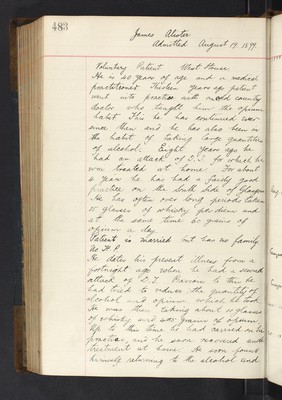 483
James Alister
Admitted August 19. 1879.
Voluntary Patient West House
He is 40 years of age and a medical
practitioner. Thirteen years ago patient
went into practice with an old country
doctor who taught him the opium
habit. This he has continued ever
since then and he has also been in
the habit of taking large quantities
of alcohol. Eight years ago he
had an attack of D.T. for which he
was treated at home. For about
a year he has had a fairly good
practice on the South Side of Glasgow
He has often over long periods taken
15 glasses of whisky per diem and
at the same time 60 grains of
opium a day.
Patient is married but has no family
No H.P.
He dates his present illness from a
fortnight ago when he had a second
attack of D.T. Previous to this he
had tried to reduce the quantity of
alcohol and opium which he took
He was then taking about 10 glasses
of whisky and grains of opium.
Up to this time he had carried on his
practice, and he soon recovered under
treatment at home. He soon found
himself returning to the alcohol and